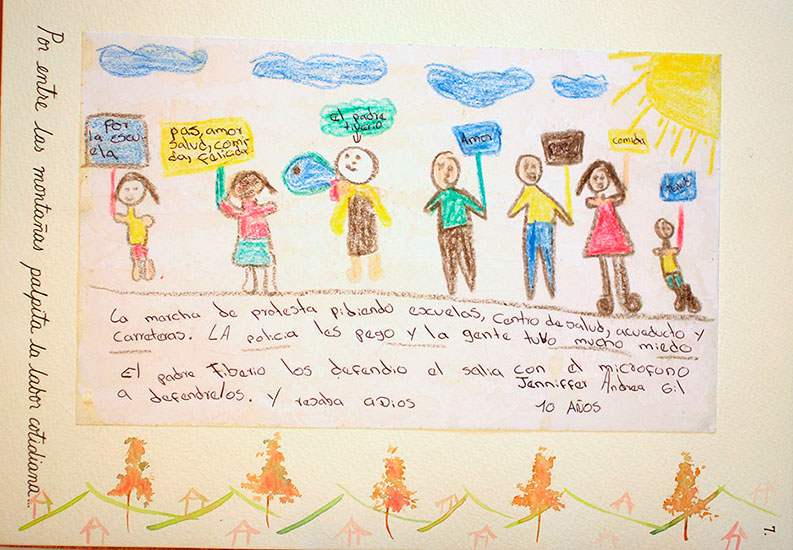 Por entre las montañas palpita la labor cotidiana...
Por
la escu-
ela
pas, amor
salud, comi
da, felicida
El padre
tiberio
Amor
Paz
comida
La marcha de protesta pidiendo escuelas, Centro de salud, acueducto y
carreteras. LA policia les pego y la gente tubo mucho miedo
El padre Tiberio los defendio el salia con el microfono
a defendrelos. Y resaba a Dios
Jenniffer Andrea Gil
10 AÑOS
7.